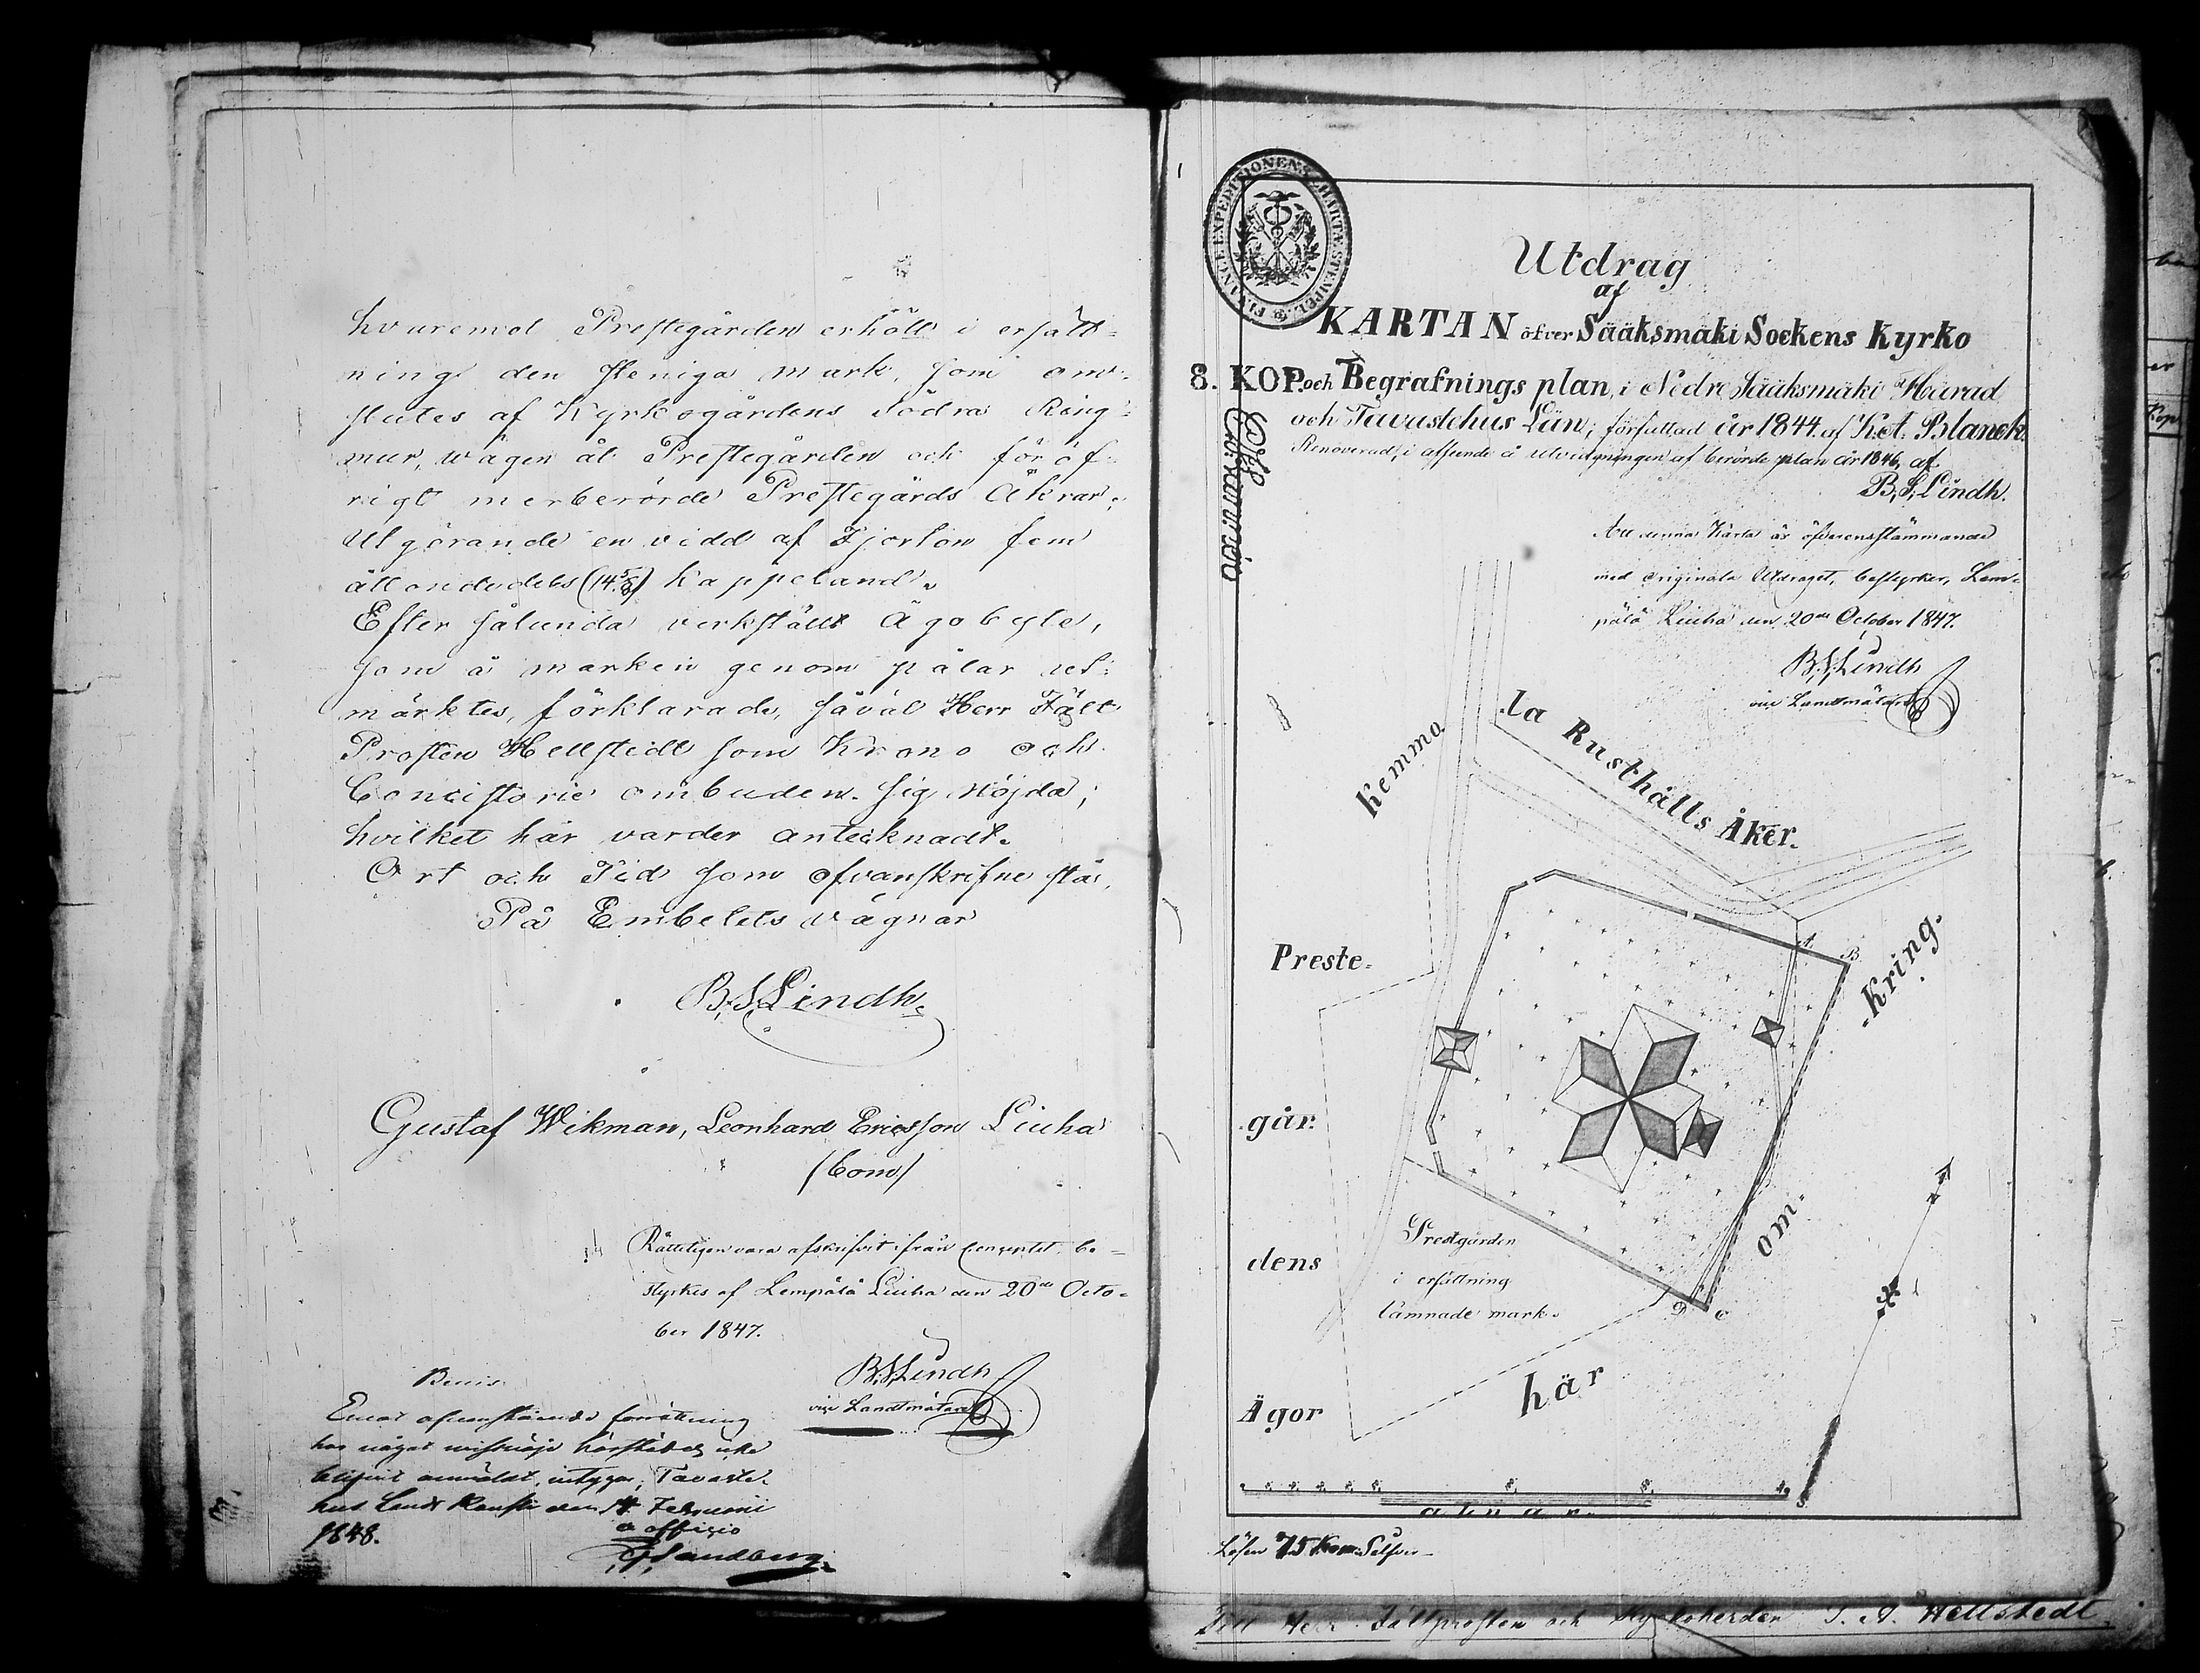 hvaremot Prestegården erhöll i ersätt-
ning den steniga mark, som om-
slutes af Kyrkogårdens södra Ring-
mur, vägen åt Prestegården och för öf-
rigt merberörde Prestegårds Åkrar;
Utgörande en vidd af Fjorton fem
åttondedels (14 5/8) Kappeland.
Efter sålunda verkställt Ägobyte,
som å marken genom pålar ut-
märktes, förklarade, såväl Herr Fält
Prosten Hellstedt som Krono och
Concistorie ombuden sig nöjda;
hvilket här varder antecknadt.
Ort och Tid som ofvanskrifne stå,
På Embetets vägnar
B. S. Lindh.
Gustaf Wikman, Leonhard Ericsson Liuha
(Com)
Rätteligen vara afskrifvit från Conceptet, be-
styrkes af Lempälä Liuha den 20de Octo-
ber 1847.
B. S. Lindh
vice Landtmätare
Bevis.
Emot ofvanstående förrättning
har något missnöje härstädes icke
blifvit anmäldt, intygar; Tavaste-
hus Lands Kansli den 14 Februarii
1848.
ex officio
Sandberg
FINANCE EXPEDITIONENS CHARTÆ STEMPEL
Utdrag
af
KARTAN öfver Sääksmäki Sockens Kyrko
8. KOP. och Begrafnings plan, i Nedre Sääksmäki Härad
och Tavastehus Län; författad år 1844 af K. A. Blanck.
Renoverad, i afseende å utvidgningen af berörde plan år 1846, af
B. S. Lindh.
Att denna Karta är öfverensstämmande
med originala Utdraget, bestyrker, Lem-
pälä Liuha den 20de October 1847.
B. S. Lindh
vice Landtmätare
Kemmo-
la Rusthålls Åker.
Preste-
går-
dens
Ägor
Kring-
om
här
A
B
Prestgården
i ersättning
lämnade mark.
D
C
S
Lösen 75 Kop. Silfver
Till Herr Fältprosten och Kyrkoherden J. A. Hellstedt.